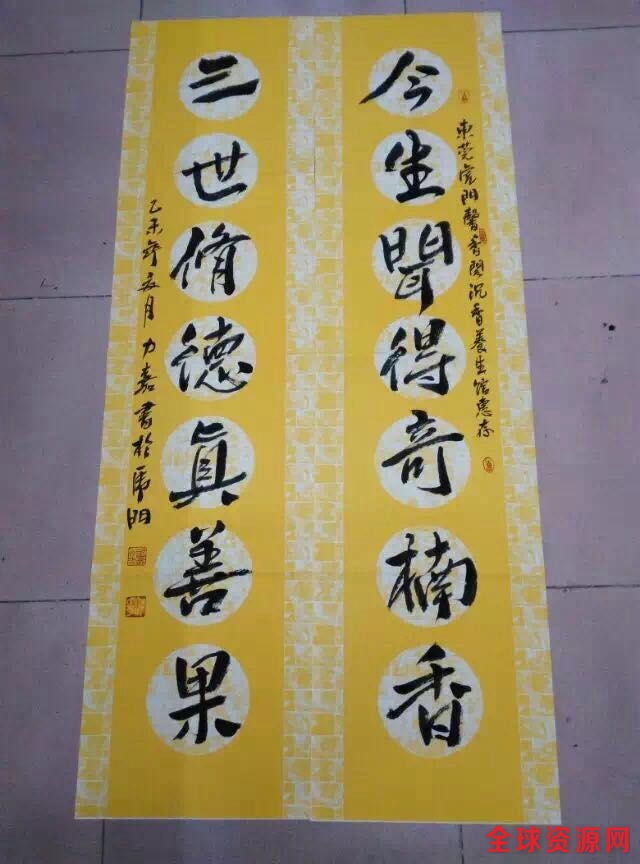 東莞虎門馨香閣沉香養生館惠存
今生聞得奇楠香
三世脩德真善果
乙未年夏月力嘉書於虎門
全球资源网